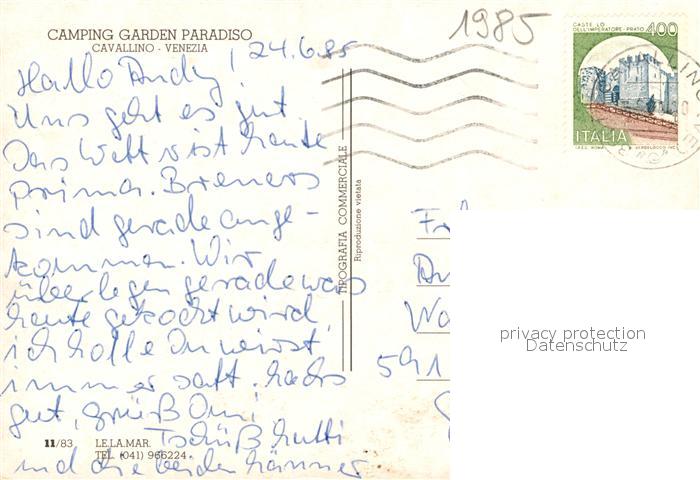 CAMPING GARDEN PARADISO
CAVALLINO - VENEZIA
24.6.85
Hallo Andy!
Uns geht es gut.
Das Wetter ist heute
prima. Breners
sind gerade ange-
kommen. Wir
überlegen gerade was
heute gekocht wird,
ich hoffe Du wirst
immer satt. Machs
gut, grüß Omi
Tschüß Mutti
und die beiden Männer
11/83 LE.LA.MAR.
TEL. (041) 966224
TIPOGRAFIA COMMERCIALE
Riproduzione vietata
1985
CASTELLO
DELL'IMPERATORE - PRATO
400
ITALIA
591
privacy protection
Datenschutz